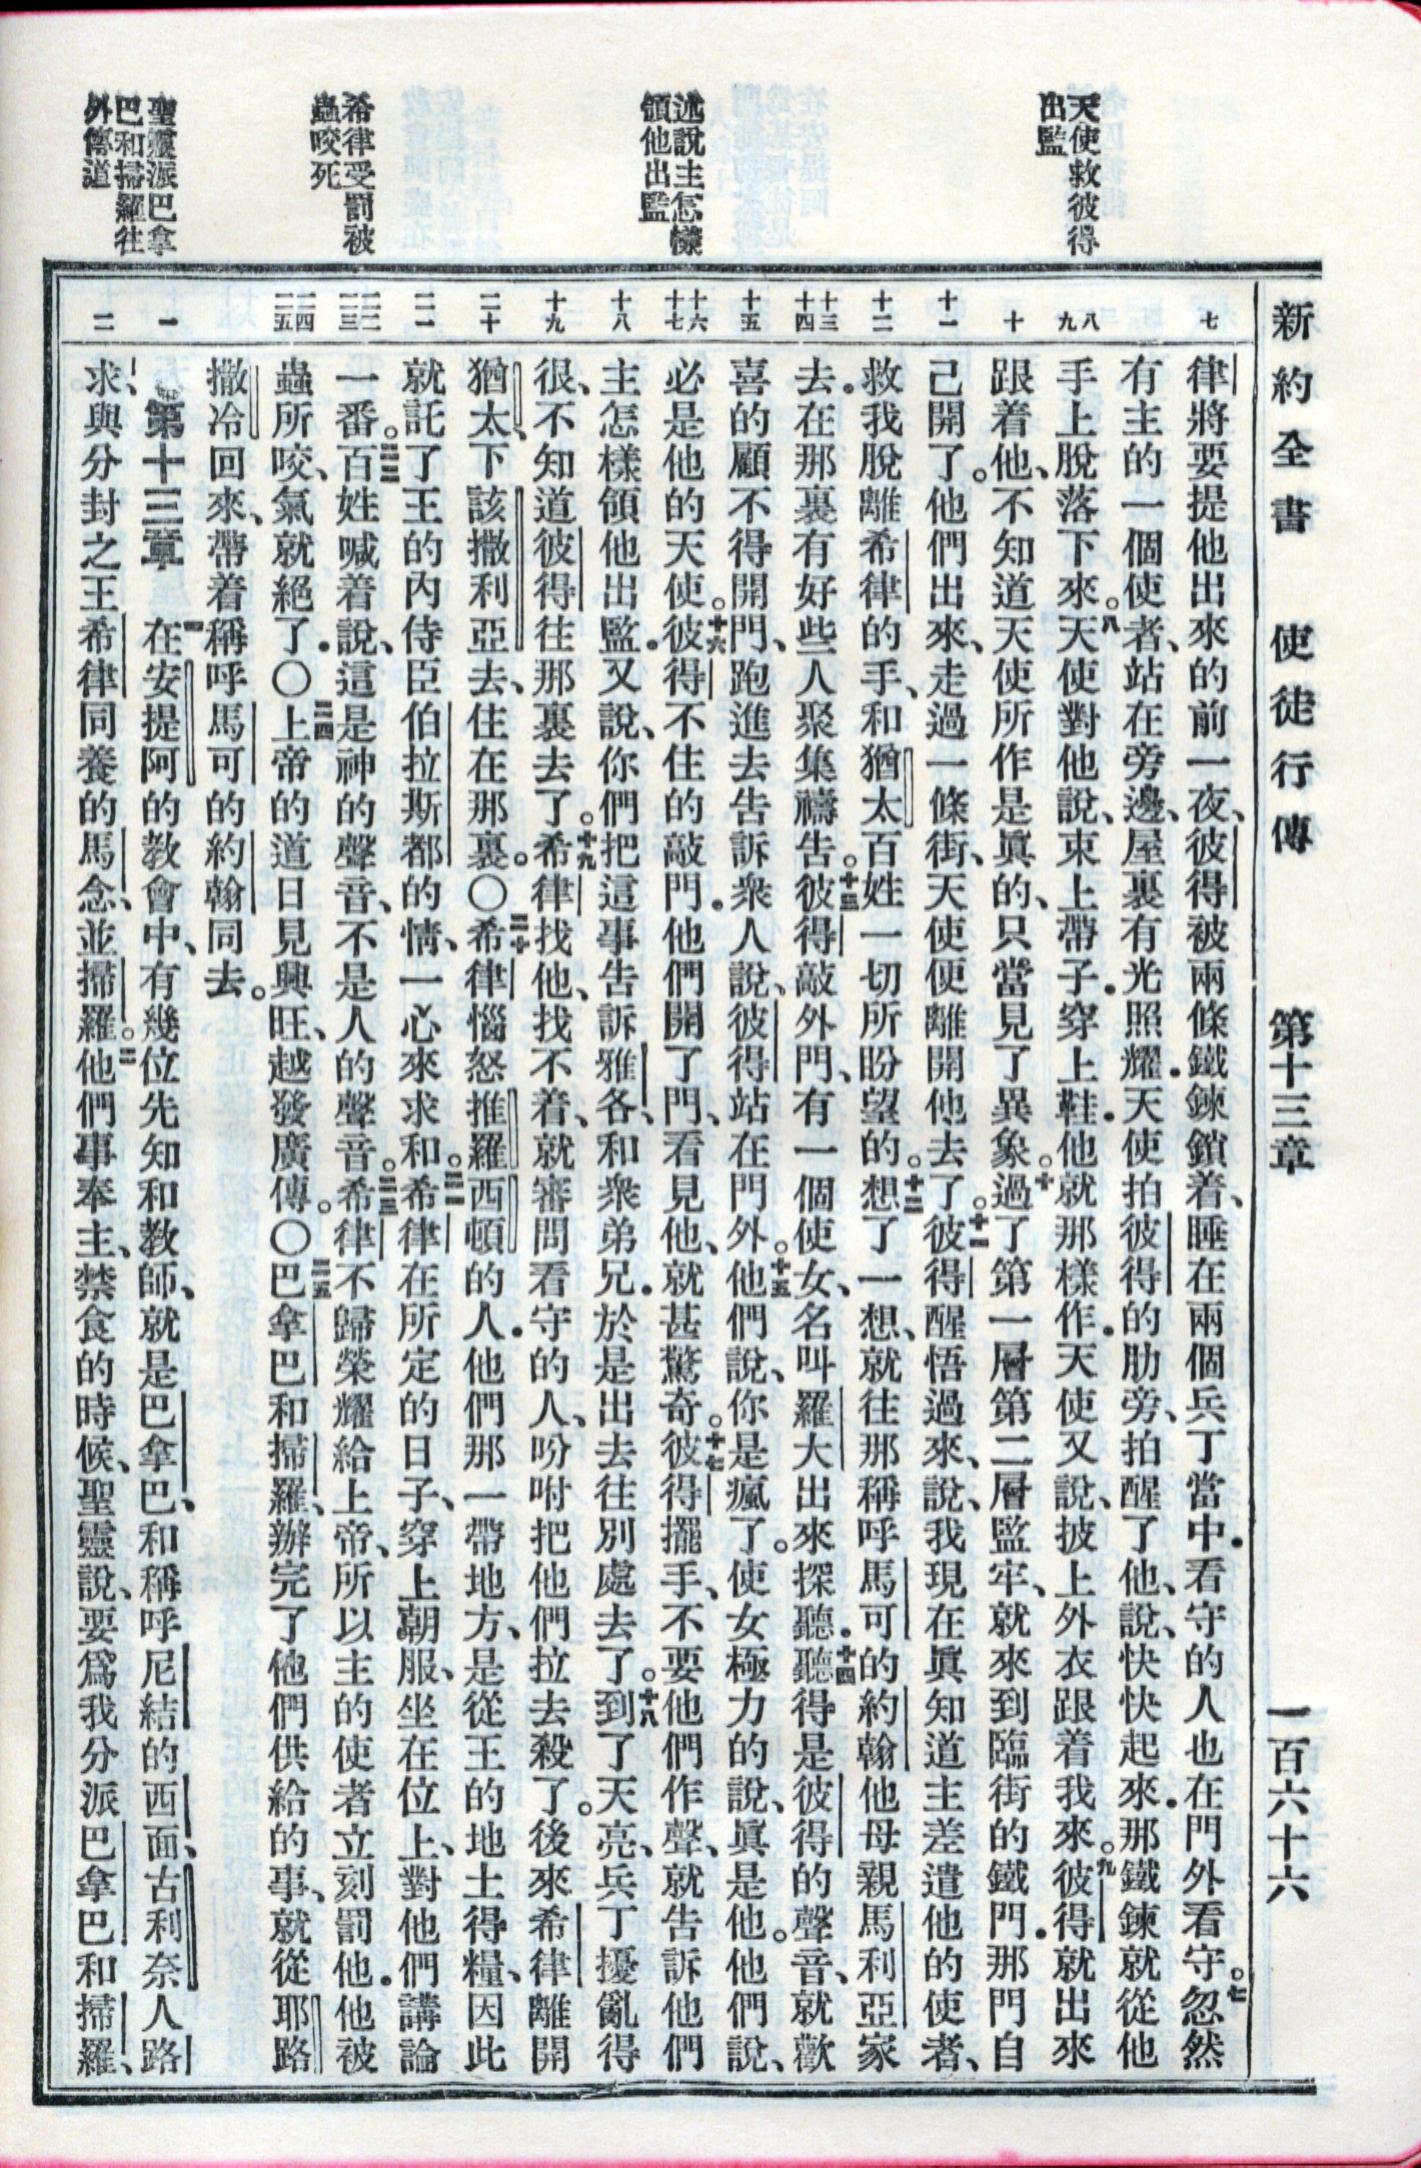 新約全書 使徒行傳 第十三章 一百六十六
天使救彼得
出監
述說主怎樣
領他出監
希律受罰被
蟲咬死
聖靈派巴拿
巴和掃羅往
外傳道
七
八
九
十
十一
十二
十三
十四
十五
十六
十七
十八
十九
二十
二一
二二
二三
二四
二五
一
二
律將要提他出來的前一夜、彼得被兩條鐵鍊鎖着、睡在兩個兵丁當中．看守的人也在門外看守。七忽然
有主的一個使者、站在旁邊、屋裏有光照耀．天使拍彼得的肋旁、拍醒了他、說、快快起來．那鐵鍊就從他
手上脫落下來。八天使對他說、束上帶子．穿上鞋．他就那樣作．天使又說、披上外衣跟着我來。九彼得就出來
跟着他、不知道天使所作是眞的、只當見了異象。十過了第一層第二層監牢、就來到臨街的鐵門．那門自
己開了。他們出來、走過一條街、天使便離開他去了。十一彼得醒悟過來、說、我現在眞知道主差遣他的使者、
救我脫離希律的手、和猶太百姓一切所盼望的。十二想了一想、就往那稱呼馬可的約翰他母親馬利亞家
去．在那裏有好些人聚集禱告。十三彼得敲外門、有一個使女、名叫羅大出來探聽．十四聽得是彼得的聲音、就歡
喜的顧不得開門、跑進去告訴衆人說、彼得站在門外。十五他們說、你是瘋了。使女極力的說、眞是他。他們說、
必是他的天使。十六彼得不住的敲門．他們開了門、看見他、就甚驚奇。十七彼得擺手、不要他們作聲、就告訴他們
主怎樣領他出監．又說、你們把這事告訴雅各、和衆弟兄．於是出去往別處去了。十八到了天亮、兵丁擾亂得
很、不知道彼得往那裏去了。十九希律找他、找不着、就審問看守的人、吩咐把他們拉去殺了。後來希律離開
猶太、下該撒利亞去、住在那裏。〇二十希律惱怒推羅西頓的人．他們那一帶地方、是從王的地土得糧、因此
就託了王的內侍臣伯拉斯都的情、一心來求和。二一希律在所定的日子、穿上朝服、坐在位上、對他們講論
一番。二二百姓喊着說、這是神的聲音、不是人的聲音。二三希律不歸榮耀給上帝、所以主的使者立刻罰他．他被
蟲所咬、氣就絕了．〇二四上帝的道日見興旺、越發廣傳。〇二五巴拿巴和掃羅、辦完了他們供給的事、就從耶路
撒冷回來、帶着稱呼馬可的約翰同去。
第十三章 一在安提阿的教會中、有幾位先知和教師、就是巴拿巴、和稱呼尼結的西面、古利奈人路
求、與分封之王希律同養的馬念、並掃羅。二他們事奉主、禁食的時候、聖靈說、要爲我分派巴拿巴和掃羅、